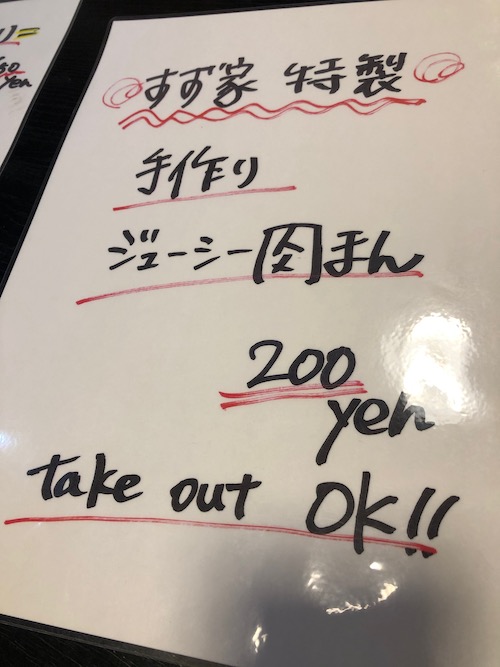 すず家 特製
手作り
ジューシー肉まん
200
yen
take out OK!!
yen